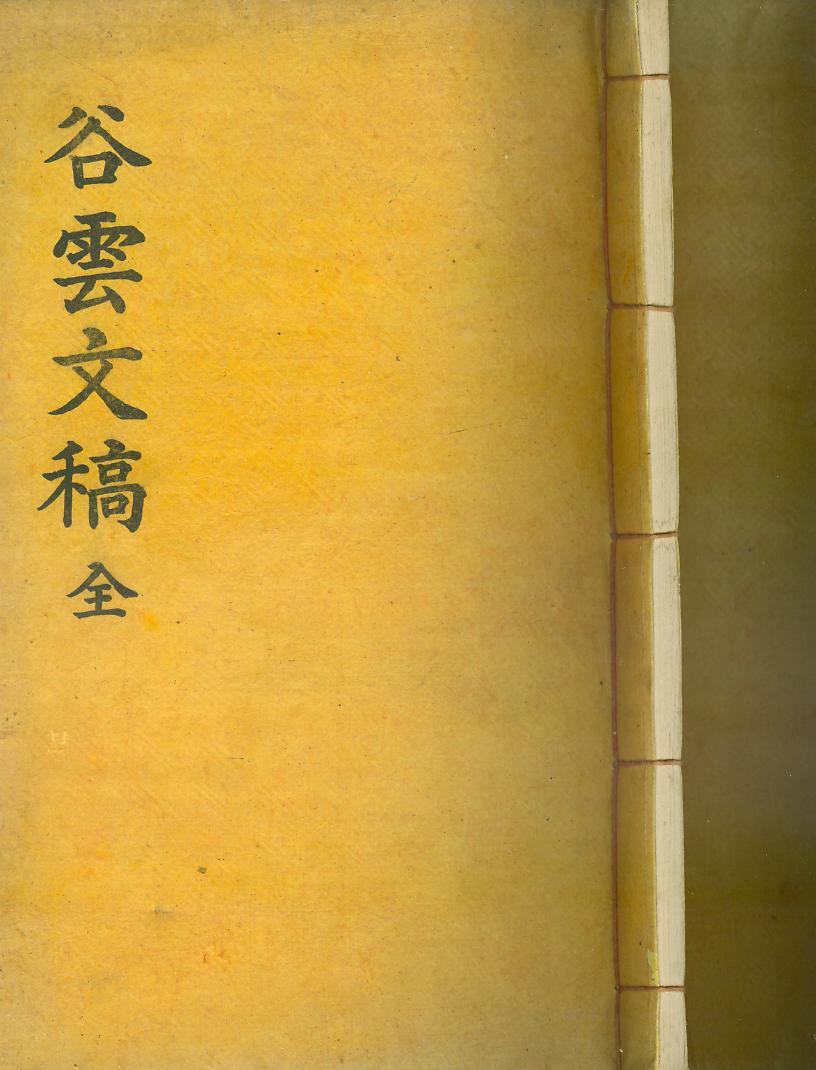 谷雲文稿 全